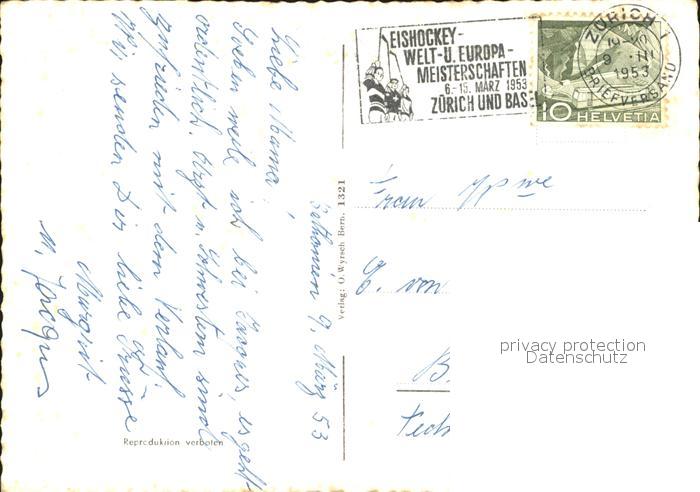 EISHOCKEY-
WELT- U. EUROPA-
MEISTERSCHAFTEN
6.-15. MÄRZ 1953
ZÜRICH UND BASEL
ZÜRICH 1
9 III
1953
BRIEFVERSAND
10 HELVETIA
9. März 53
Liebe Mama,
Soeben weile ich bei Jacques, es geht
ordentlich. Arzt u. Schwestern sind
zufrieden mit dem Verlauf.
Wir senden Dir liebe Grüsse
Margrit
u. Jacques
Verlag: O. Wyrsch Bern. 1321
Frau
E. von
B.
privacy protection
Datenschutz
Reproduktion verboten